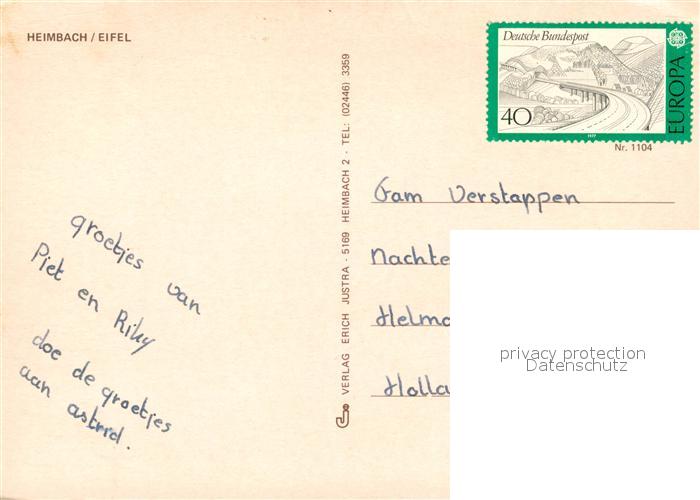 HEIMBACH / EIFEL
Deutsche Bundespost
40
EUROPA
1977
Nr. 1104
VERLAG ERICH JUSTRA - 5169 HEIMBACH 2 - TEL: (02446) 3359
groetjes van
Piet en Riky
doe de groetjes
aan astrid.
Fam Verstappen
Nachte
Helmo
Holla
privacy protection
Datenschutz